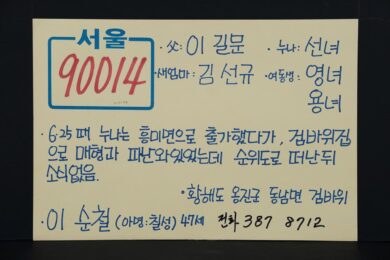 서울
90014
· 父: 이 길문 · 누나: 선녀
· 새엄마: 김 선규 · 여동생: 영녀
용녀
· 6·25 때 누나는 흥미면으로 출가했다가, 검바위집
으로 매형과 피난와있었는데 순위도로 떠난뒤
소식없음.
· 황해도 옹진군 동남면 검바위
· 이 순철 (아명: 칠성) 47세 전화 387 8712